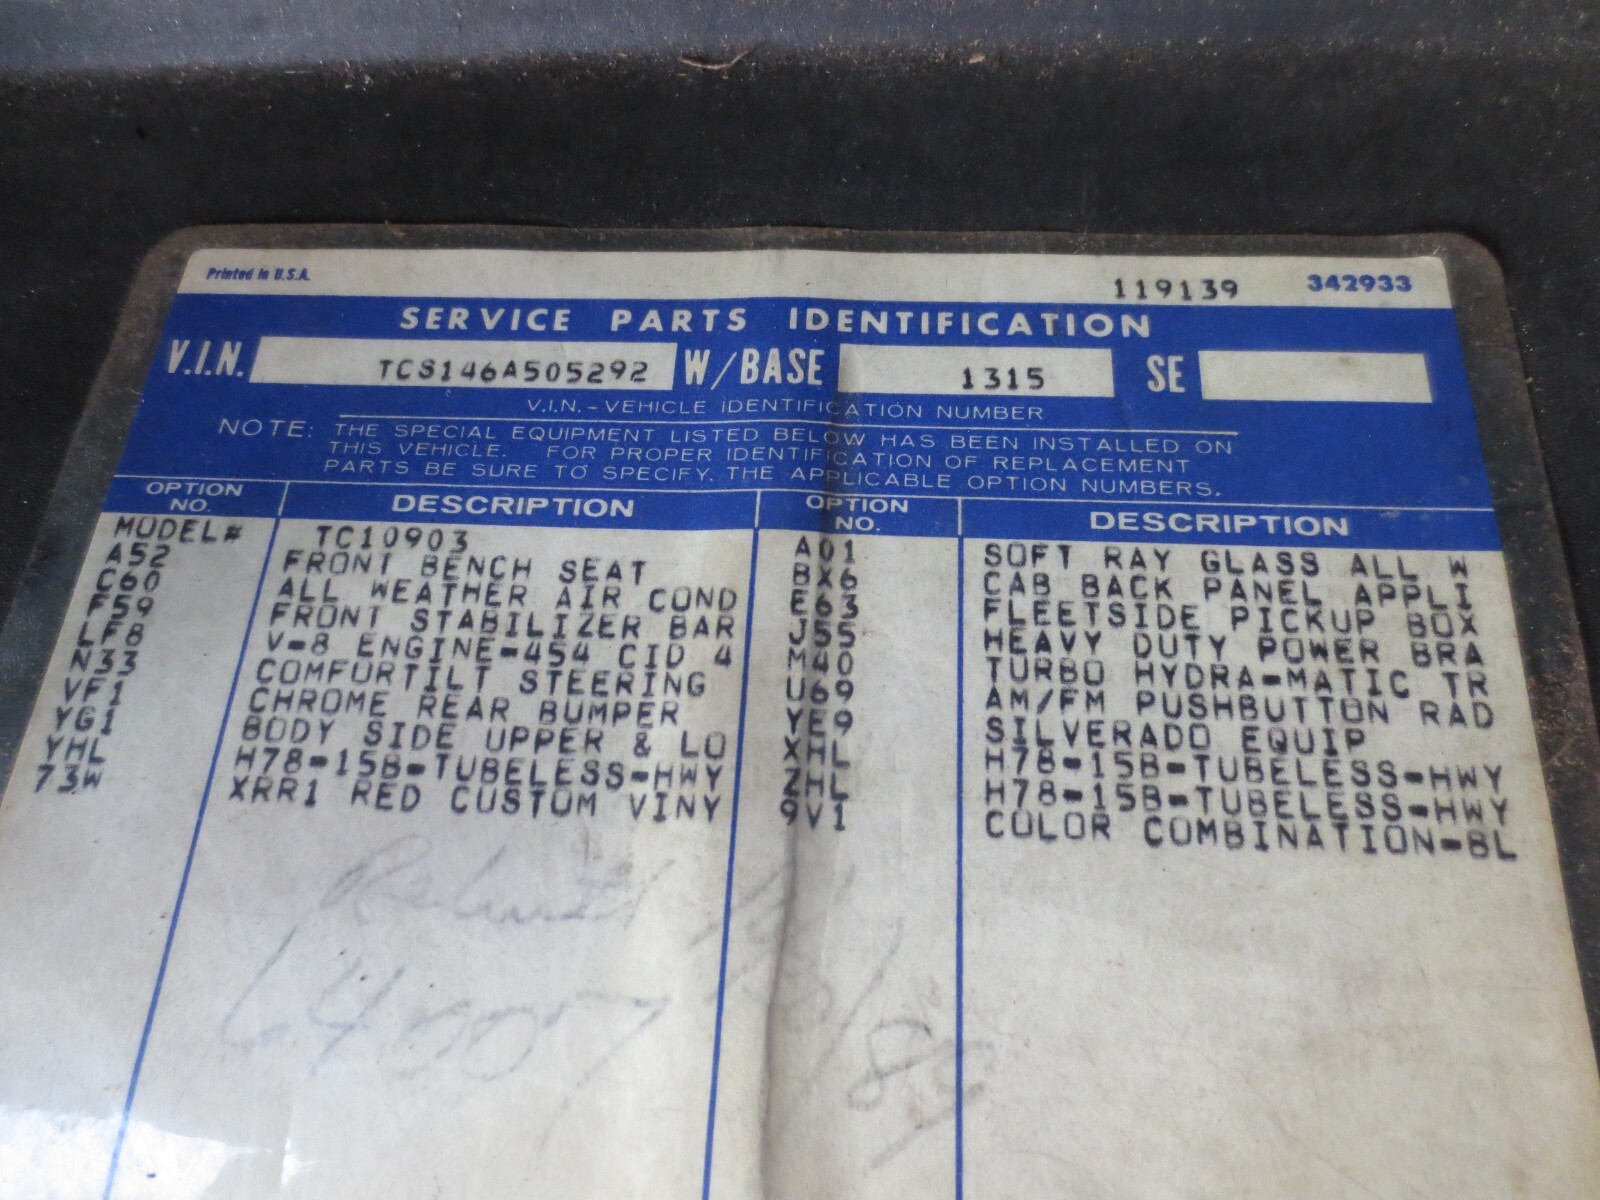 Printed in U.S.A. 119139 342933
SERVICE PARTS IDENTIFICATION
V.I.N. TCS146A505292 W/BASE 1315 SE
V.I.N.-VEHICLE IDENTIFICATION NUMBER
NOTE: THE SPECIAL EQUIPMENT LISTED BELOW HAS BEEN INSTALLED ON
THIS VEHICLE. FOR PROPER IDENTIFICATION OF REPLACEMENT
PARTS BE SURE TO SPECIFY THE APPLICABLE OPTION NUMBERS.
OPTION NO. DESCRIPTION OPTION NO. DESCRIPTION
MODEL# TC10903 A01 SOFT RAY GLASS ALL W
A52 FRONT BENCH SEAT BX6 CAB BACK PANEL APPLI
C60 ALL WEATHER AIR COND E63 FLEETSIDE PICKUP BOX
F59 FRONT STABILIZER BAR J55 HEAVY DUTY POWER BRA
LF8 V-8 ENGINE-454 CID 4 M40 TURBO HYDRA-MATIC TR
N33 COMFORTILT STEERING U69 AM/FM PUSHBUTTON RAD
VF1 CHROME REAR BUMPER YE9 SILVERADO EQUIP
YG1 BODY SIDE UPPER & LO XHL H78-15B-TUBELESS-HWY
YHL H78-15B-TUBELESS-HWY ZHL H78-15B-TUBELESS-HWY
73W XRR1 RED CUSTOM VINY 9V1 COLOR COMBINATION-BL